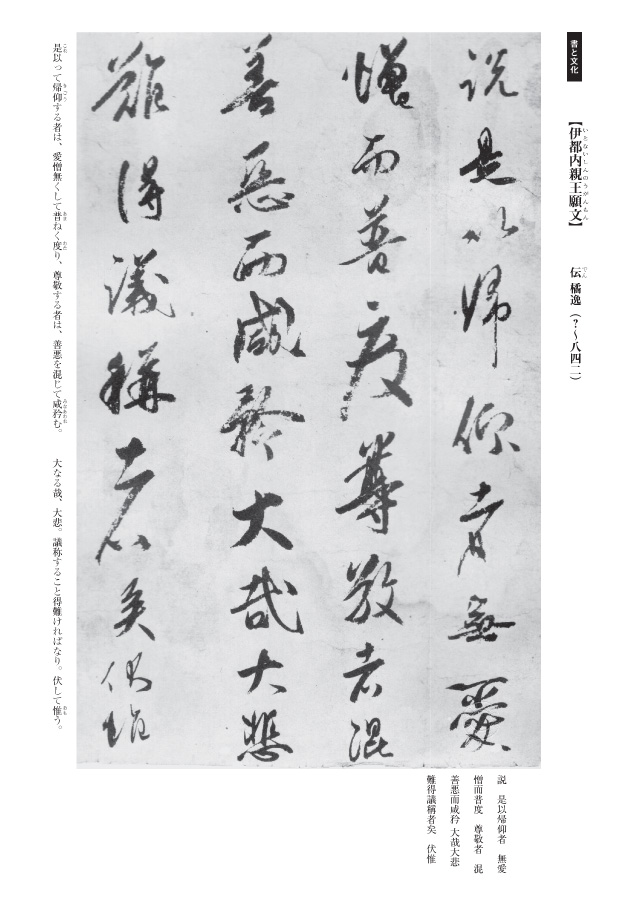 書と文化
【伊都内親王願文】
いとないしんのうがんもん
伝 橘逸（？～八四二）
でん
説是以帰仰者無愛
憎而普度尊敬者混
善悪而咸矜大哉大悲
難得議稱者矣伏惟
説　是以帰仰者　無愛
憎而普度　尊敬者　混
善悪而咸矜 大哉大悲
難得議稱者矣　伏惟
是以って帰仰する者は、愛憎無くして普ねく度り、尊敬する者は、善悪を混じて咸矜む。　大なる哉、大悲。議称すること得難ければなり。伏して惟う。
これ きごう あま わた みなあわれ おも